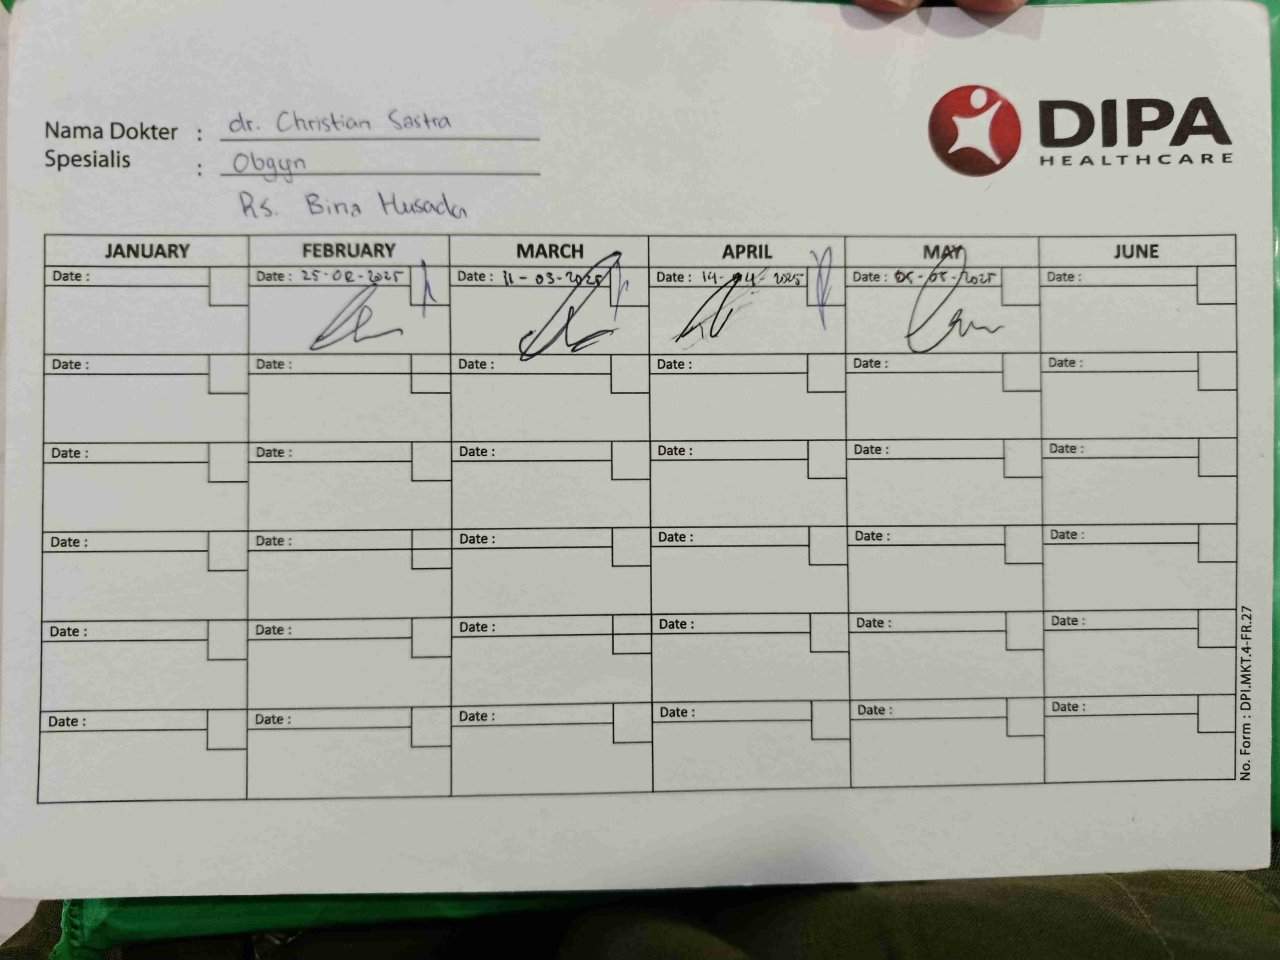 DIPA
HEALTHCARE
Nama Dokter : dr. Christian Sastra
Spesialis : Obgyn
Rs. Bina Husada
JANUARY FEBRUARY MARCH APRIL MAY JUNE
Date : Date : 25-02-2025 Date : 11-03-2025 Date : 14-04-2025 Date : 05-05-2025 Date :
Date : Date : Date : Date : Date : Date :
Date : Date : Date : Date : Date : Date :
Date : Date : Date : Date : Date : Date :
Date : Date : Date : Date : Date : Date :
Date : Date : Date : Date : Date : Date :
No. Form : DPI.MKT.4-FR.27